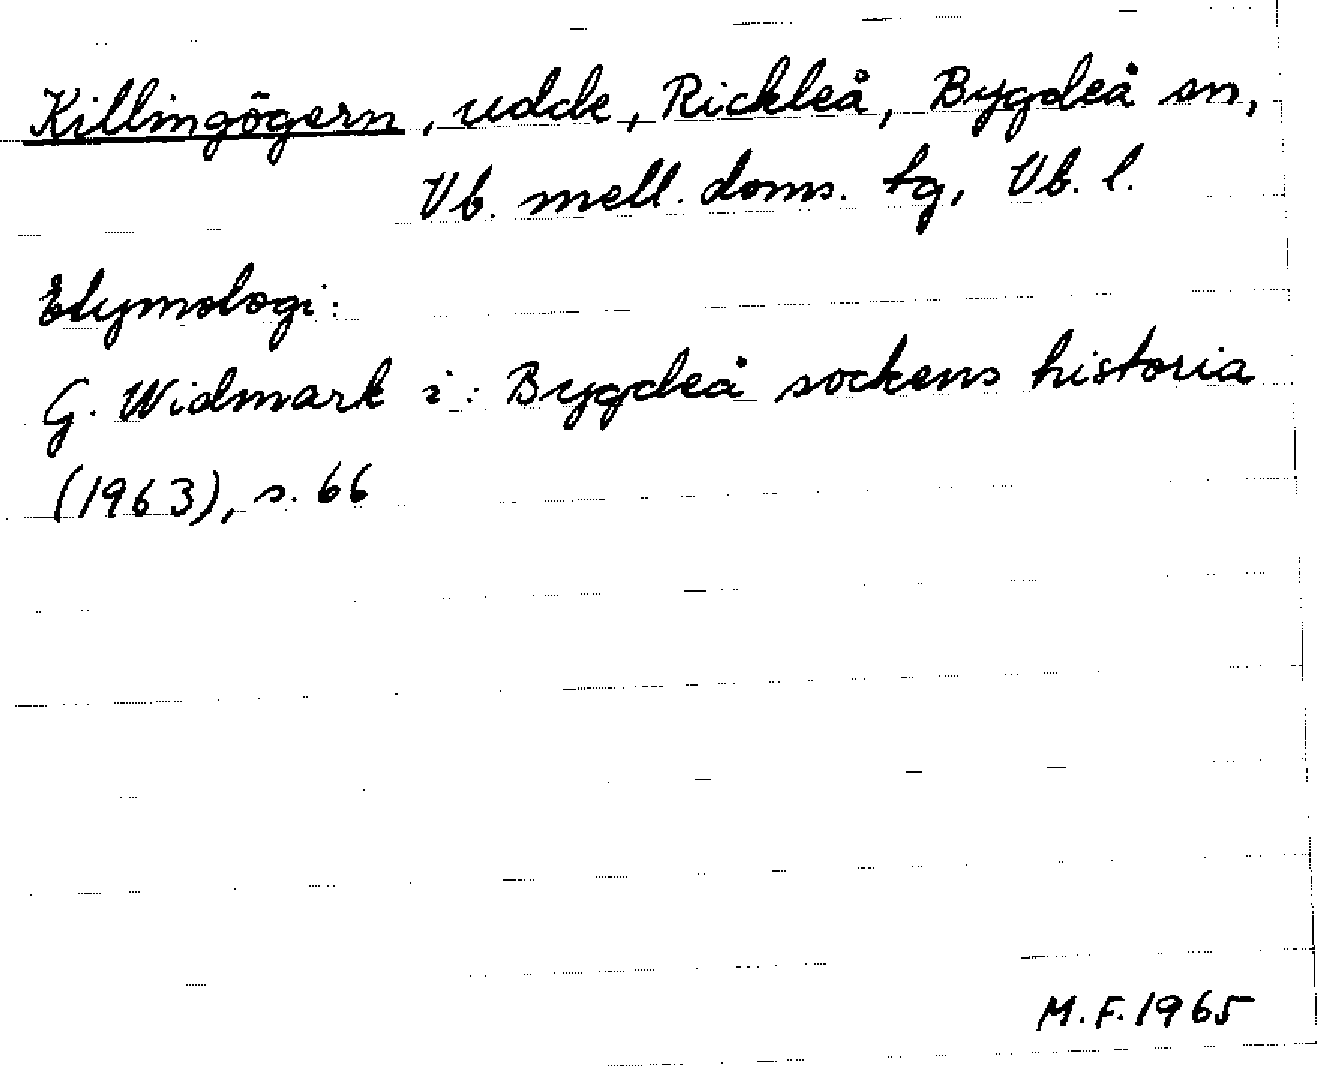 Killingögern, udde, Rickleå, Bygdeå sn,
Vb. mell. doms. tg, Vb. l.
Etymologi:
G. Widmark i: Bygdeå sockens historia
(1963), s. 66
M.F. 1965